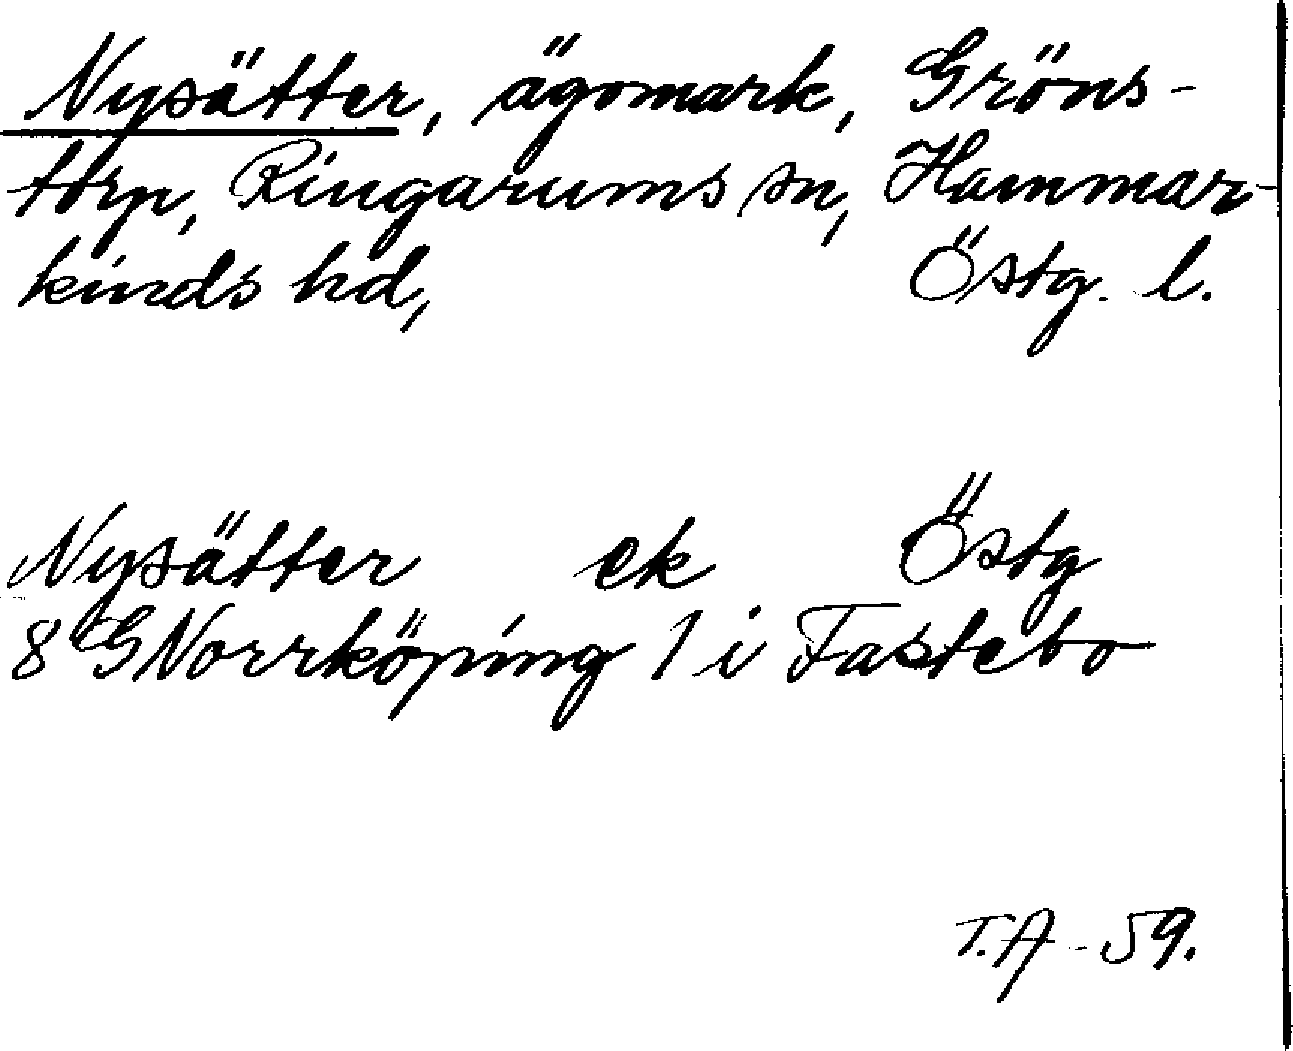 Nysätter, ägomark, Gröns-
torp, Ringarums sn, Hammar-
kinds hd, Östg. l.
Nysätter ek Östg
8 G Norrköping 1 i Fastebo
T.A - 59.